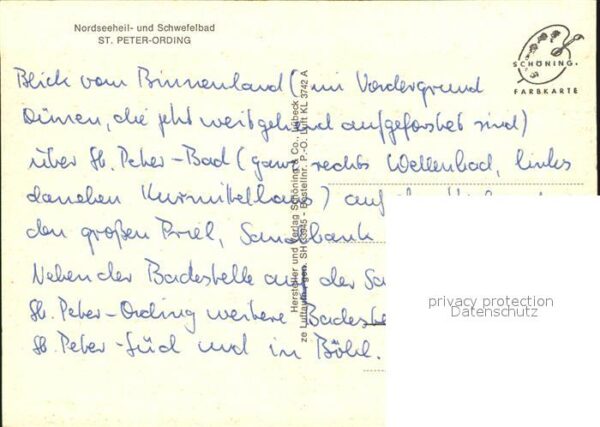 Nordseeheil- und Schwefelbad
ST. PETER-ORDING
SCHÖNING.
FARBKARTE
Blick vom Binnenland (im Vordergrund
Dünen, die jetzt weitgehend aufgeforstet sind)
über St. Peter-Bad (ganz rechts Wellenbad, links
daneben Kurmittelhaus) auf
den großen Priel, Sandbank
Neben der Badestelle auf der Sa
St. Peter-Ording weitere Badeste
St. Peter-Süd und in Böhl.
Hersteller und Verlag Schöning & Co., Lübeck
SH 33945 - Bestellnr. P.-O. Luft KL 3742 A
privacy protection
Datenschutz